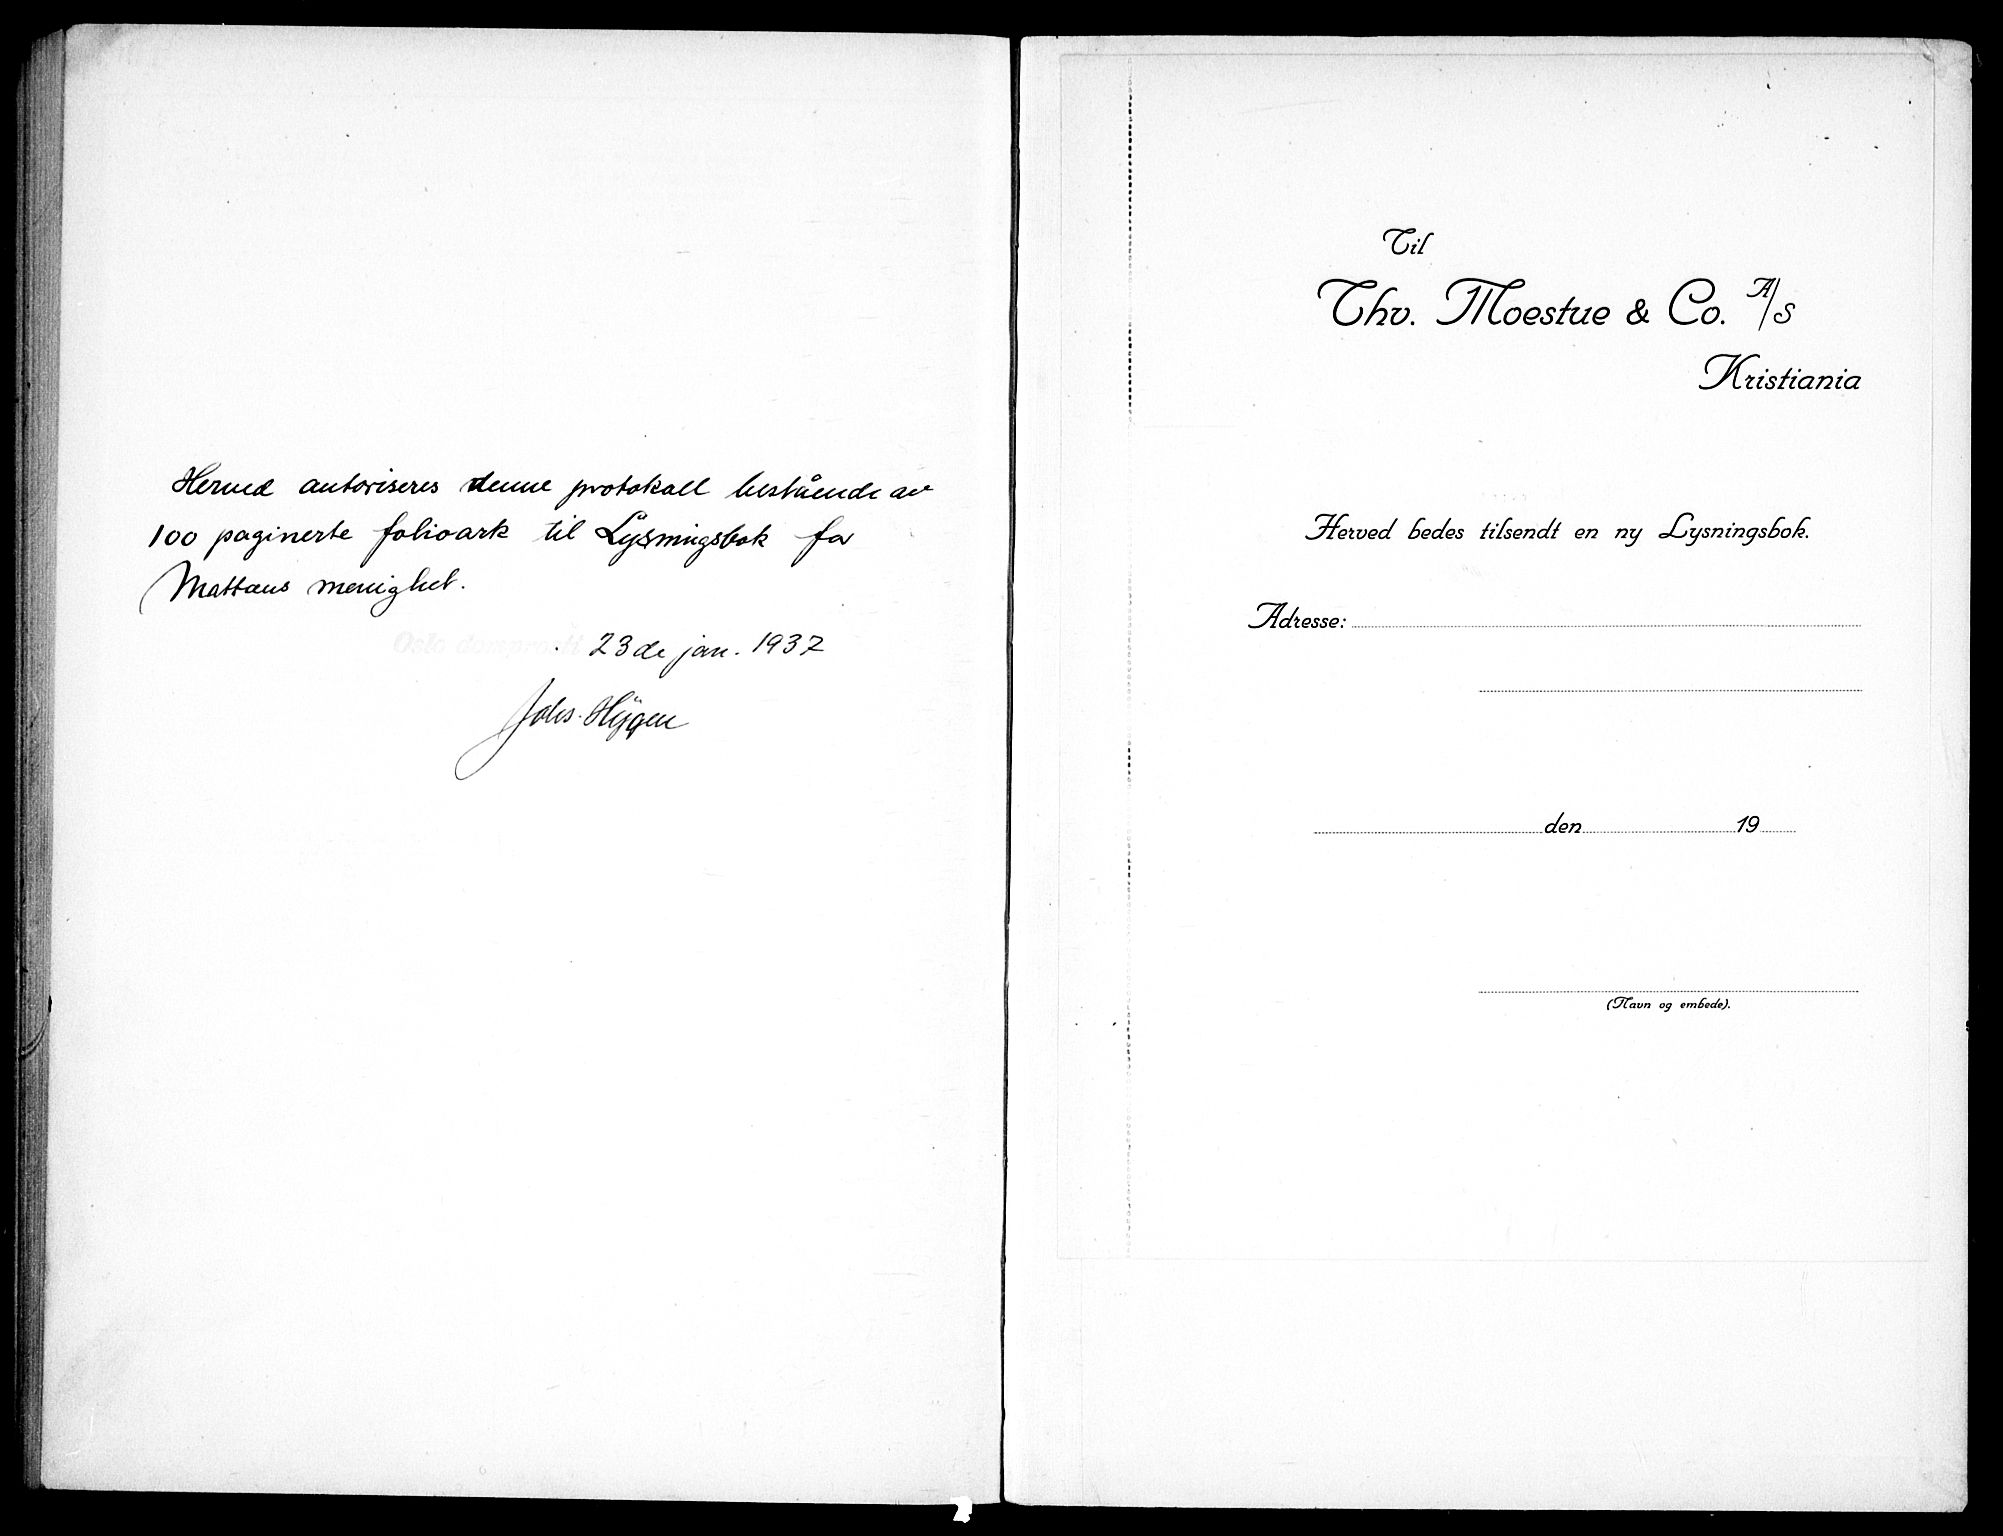 Herved autoriseres denne protokoll bestående av
100 paginerte folioark til Lysningsbok for
Mattæus menighet.
Oslo domprosti 23de jan. 1937
Johs. Hÿgen
Til
Thv. Moestue & Co. A/S
Kristiania
Herved bedes tilsendt en ny Lysningsbok.
Adresse:
den 19
(Navn og embede).